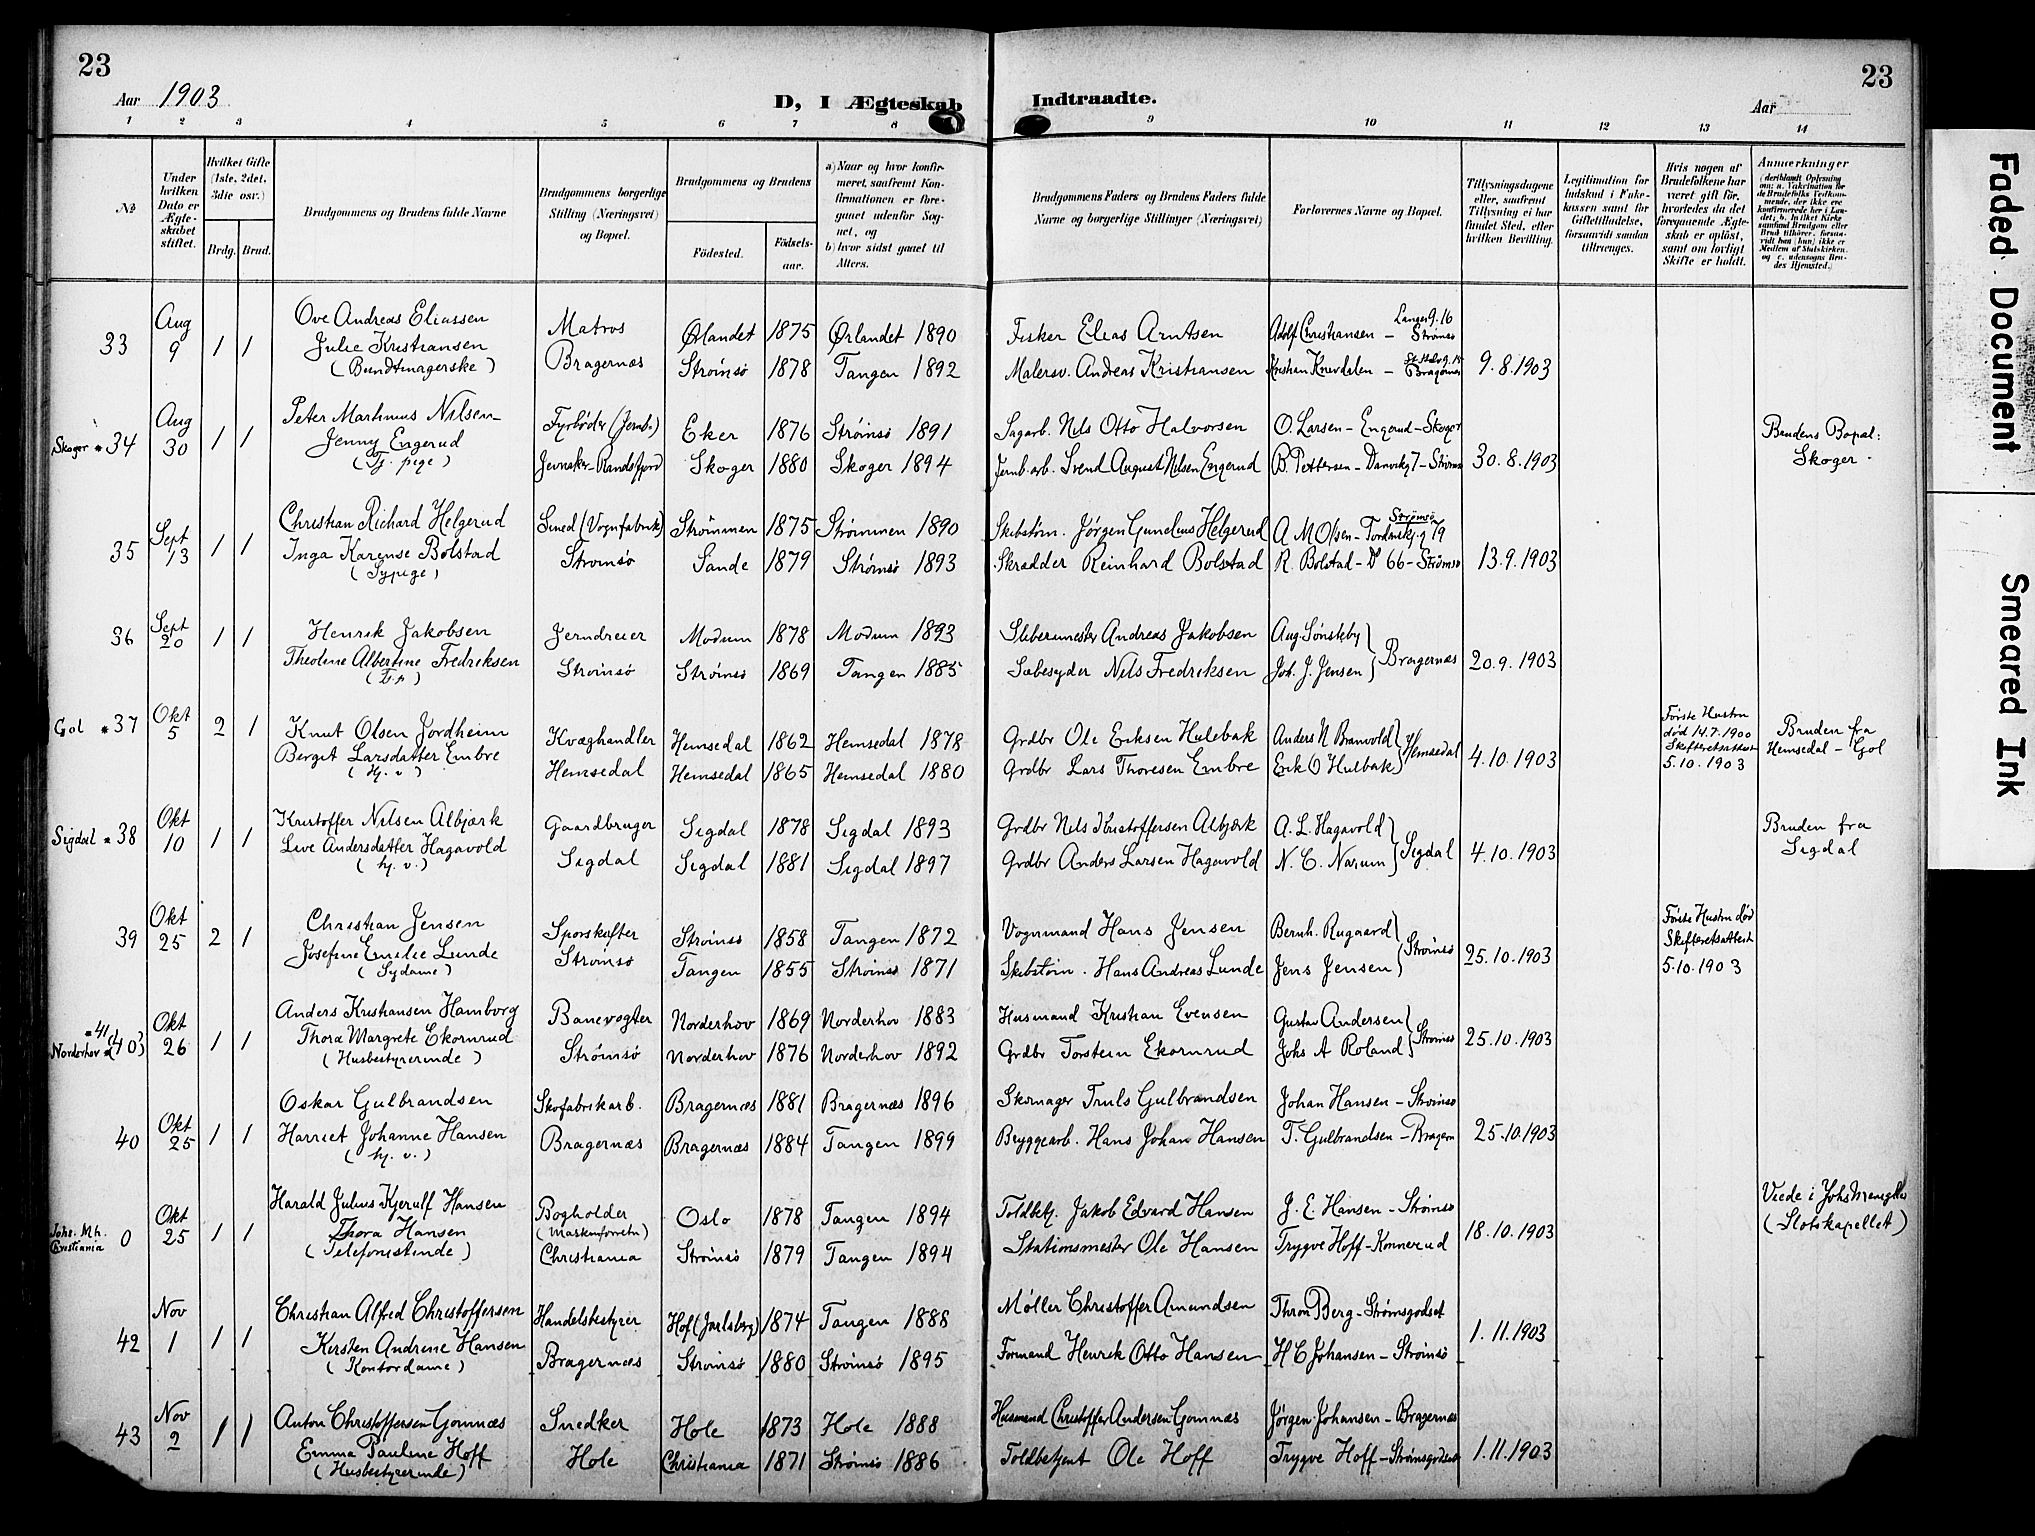 23
Aar 1903
D, I Ægteskab
Indtraadte.
Aar
23
1 2 3 4 5 6 7 8 9 10 11 12 13 14
№
Under hvilken Dato er Ægteskabet stiftet.
Hvilket Gifte (1ste, 2det, 3die osv.)
Brdg. Brud.
Brudgommens og Brudens fulde Navne
Brudgommens borgerlige Stilling (Næringsvei) og Bopæl.
Brudgommens og Brudens
Fødested.
Fødselsaar.
a) Naar og hvor konfirmeret, saafremt Konfirmationen er foregaaet udenfor Sognet, og
b) hvor sidst gaaet til Alters.
Brudgommens Faders og Brudens Faders fulde Navne og borgerlige Stillinger (Næringsvei)
Forlovernes Navne og Bopæl.
Tillysningsdagene eller, saafremt Tillysning ei har fundet Sted, efter hvilken Bevilling.
Legitimation for Indskud i Enkekassen samt for Giftetilladelse, forsaavidt saadan tiltrænges.
Hvis nogen af Brudefolkene har været gift før, hvorledes da det foregaaende Ægteskab er opløst, samt om lovligt Skifte er holdt.
Anmerkninger
(deriblandt Oplysning om: a. Vakcination for de Brudefolks Vedkommende, der ikke ere konfirmerede her i Landet; b. hvilket Kirkesamfund Brudgom eller Brud tilhører, forsaavidt han (hun) ikke er Medlem af Statskirken, og c. udensogns Brudes Hjemsted.)
33 Aug 9 1 1 Ove Andreas Eliassen Matros Ørlandet 1875 Ørlandet 1890 Fisker Elias Arntsen Adolf Christiansen – Langes g. 16 Strømsø
Julie Kristiansen (Bundtmagerske) Bragernæs Strømsø 1878 Tangen 1892 Malersv. Andreas Kristiansen Kristian Knivdalen – Bragernæs 9.8.1903
Skoger * 34 Aug 30 1 1 Peter Martinius Nilsen Fyrbøder (Jernb.) Eker 1876 Strømsø 1891 Sagarb. Nils Otto Halvorsen O. Larsen – Engerud – Skoger
Jenny Engerud (Tj. pige) Jevnaker – Randsfjord Skoger 1880 Skoger 1894 Jernb.arb. Svend August Nilsen Engerud B. Pettersen – Danvikg 7 – Strømsø 30.8.1903 Brudens Bopæl: Skoger.
35 Sept 13 1 1 Christian Richard Helgerud Smed (Vognfabrik) Strømmen 1875 Strømmen 1890 Skibstøm. Jørgen Gundius Helgerud A M Olsen – Tordenskj.g 79 Strømsø
Inga Karense Bolstad (Sypige) Strømsø Sande 1879 Strømsø 1893 Skrædder Reinhard Bolstad R. Bolstad – Do 66 – Strømsø 13.9.1903
36 Sept 20 1 1 Henrik Jakobsen Jerndreier Modum 1878 Modum 1893 Slibermester Andreas Jakobsen Aug. Sønsteby
Theoline Albertine Fredriksen (T.p) Strømsø Strømsø 1869 Tangen 1885 Sæbesyder Nils Fredriksen Joh. J. Jensen Bragernæs 20.9.1903
Gol * 37 Okt 5 2 1 Knut Olsen Jordheim Kvæghandler Hemsedal 1862 Hemsedal 1878 Grdbr Ole Eriksen Hulebak Anders N Branvold
Bergit Larsdatter Embre (hj. v) Hemsedal Hemsedal 1865 Hemsedal 1880 Grdbr Lars Thoresen Embre Erik O Hulbak Hemsedal 4.10.1903 Første Hustru død 14.7.1900 Skifteretsattest 5.10.1903 Bruden fra Hemsedal – Gol
Sigdal * 38 Okt 10 1 1 Kristoffer Nilsen Albjærk Gaardbruger Sigdal 1878 Sigdal 1893 Grdbr Nils Kristoffersen Albjærk A. L. Hagavold
Live Andersdatter Hagavold (hj. v.) Sigdal Sigdal 1881 Sigdal 1897 Grdbr Anders Larsen Hagavold N. C. Narum Sigdal 4.10.1903 Bruden fra Sigdal
39 Okt 25 2 1 Christian Jensen Sporskifter Strømsø 1858 Tangen 1872 Vognmand Hans Jensen Bernh. Rugaard
Josefine Emilie Lunde (Sydame) Strømsø Tangen 1855 Strømsø 1871 Skibstøm. Hans Andreas Lunde Jens Jensen Strømsø 25.10.1903 Første Hustru død Skifteretsattest 5.10.1903
*41 Norderhov (40) Okt 26 1 1 Anders Kristiansen Hamborg Banevogter Norderhov 1869 Norderhov 1883 Husmand Kristian Evensen Gustav Andersen
Thora Margrete Ekornrud (Husbestyrerinde) Strømsø Norderhov 1876 Norderhov 1892 Grdbr Torstein Ekornrud Johs A Roland Strømsø 25.10.1903
40 Okt 25 1 1 Oskar Gulbrandsen Skofabrikarb. Bragernæs 1881 Bragernæs 1896 Skomager Truls Gulbrandsen Johan Hansen – Strømsø
Harriet Johanne Hansen (hj. v.) Bragernæs Bragernæs 1884 Tangen 1899 Bryggearb. Hans Johan Hansen T. Gulbrandsen – Bragern 25.10.1903
Johs. Mh. Christiania 0 Okt 25 1 1 Harald Julius Kjerulf Hansen Bogholder (Maskinforretn) Oslo 1878 Tangen 1894 Toldbetj. Jakob Edvard Hansen J. E. Hansen – Strømsø
Thora Hansen (Telefonistinde) Christiania Strømsø 1879 Tangen 1894 Stationsmester Ole Hansen Trygve Hoff – Konnerud 18.10.1903 Viede i Johs Menighed (Slotskapellet)
42 Nov 1 1 1 Christian Alfred Christoffersen Handelsbestyrer Hof (Jarlsberg) 1874 Tangen 1888 Møller Christoffer Amundsen Thron Berg – Strømsgodset
Kirsten Andrine Hansen (Kontordame) Bragernæs Strømsø 1880 Strømsø 1895 Formand Henrik Otto Hansen H C Johansen – Strømsø 1.11.1903
43 Nov 2 1 1 Anton Christoffersen Gomnæs Snedker Hole 1873 Hole 1888 Husmand Christoffer Andersen Gomnæs Jørgen Johansen – Bragernæs
Emma Pauline Hoff (Husbestyrerinde) Hole Christiania 1871 Strømsø 1886 Toldbetjent Ole Hoff Trygve Hoff – Strømsgodset 1.11.1903
Faded Document
Smeared Ink